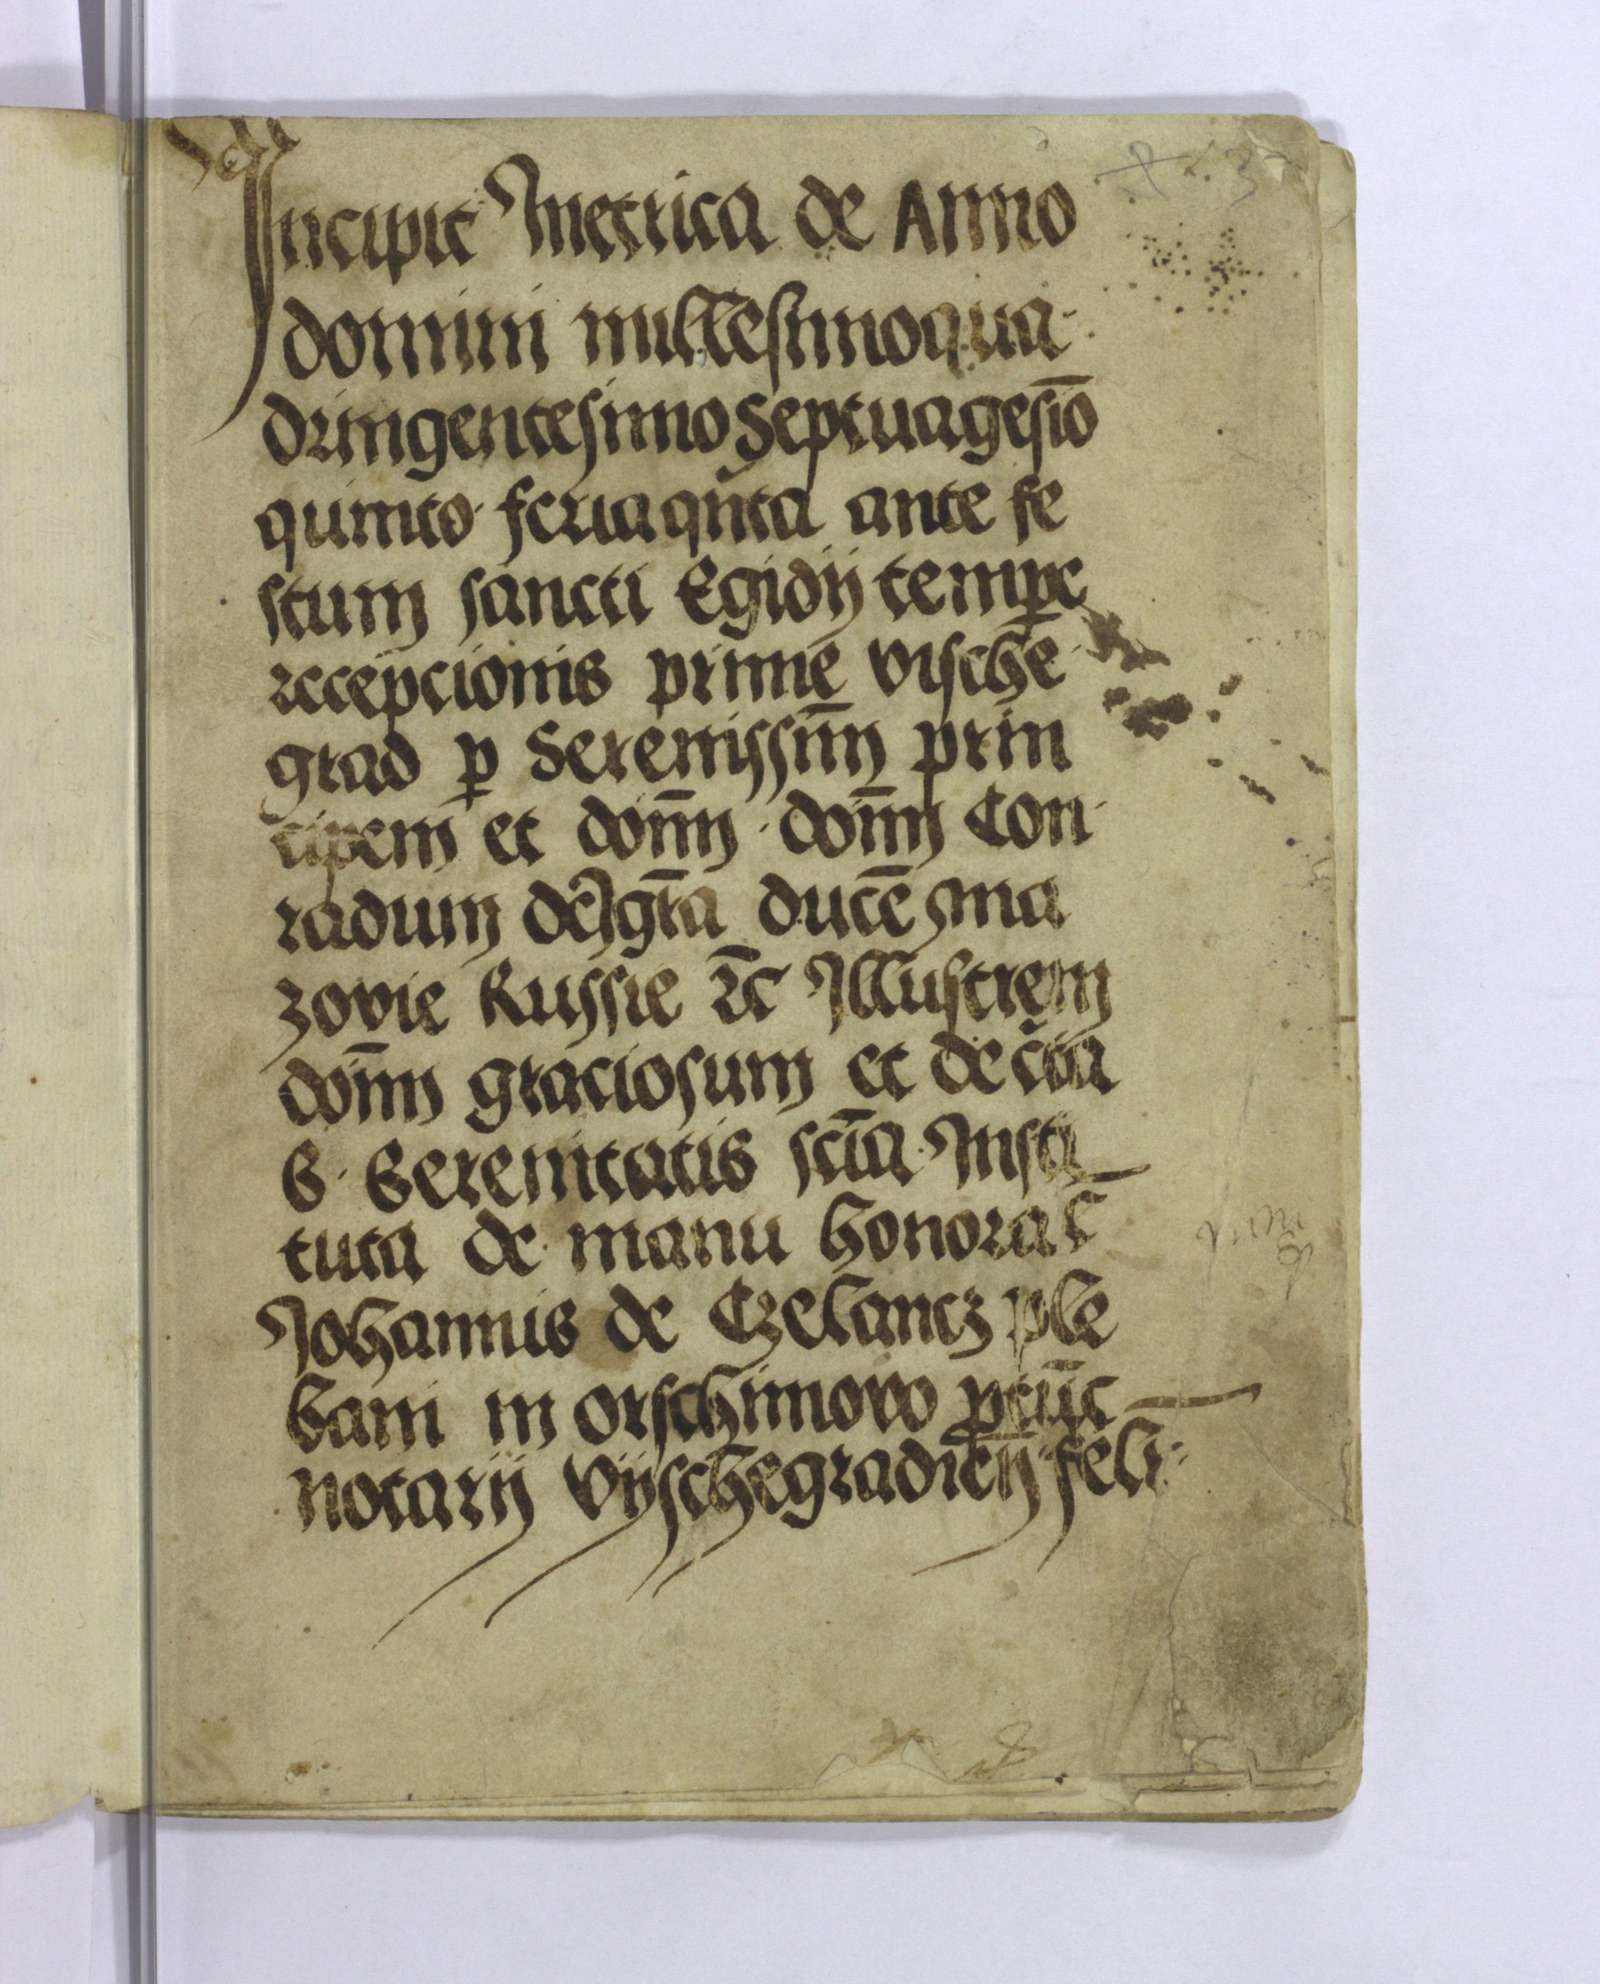 Incipit Metrica de Anno
domini millesimoqua-
dringentesimo Septuagesi͞o
quinto feria qn̄ta ante fe
stum sancti Egidij tempꝑe
recepcionis prime vische-
grad ꝑ Serenissim̄ prin
cipem et dom̄m dom̄m Con-
radum dei gr̄a ducē ma
zovie Russie ⁊c Illustrem
dom̄m graciosum et de c̄ta
S. Serenitatis sci͞a Insti
tuta de manu honora
Johannis de Czelancz ple
bani in orschimowo
notarij vÿschegradieñ feli-